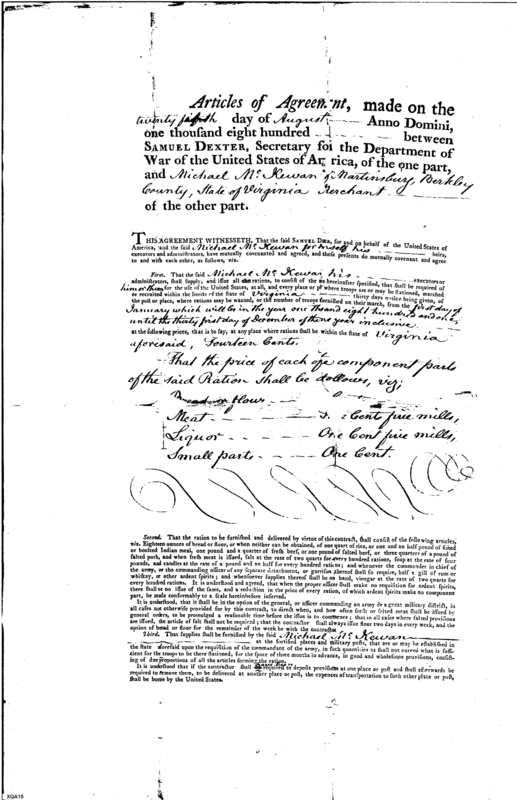 Articles of Agreement, made on the
twenty fifth day of August Anno Domini,
one thouſand eight hundred between
SAMUEL DEXTER, Secretary for the Department of
War of the United States of rica, of the one part,
and Michael Mc Kewan of Martinsburg, Berkley
County, State of Virginia Merchant
of the other part.
THIS AGREEMENT WITNESSETH, That the ſaid SAMUEL for and on behalf of the United States of
America, and the ſaid Michael Mc Kewan for himself his heirs,
executors and adminiſtrators, have mutually covenanted and agreed, and theſe preſents do mutually covenant and agree
to and with each other, as follows, viz.
Firſt. That the ſaid Michael Mc Kewan, his executors or
adminiſtrators, ſhall ſupply, and iſſue all the rations, to conſiſt of the hereinafter ſpecified, that ſhall be required of
him or them for the uſe of the United States, at all, and every place or where troops are or may be ſtationed, marched
or recruited within the limits of the State of Virginia thirty days notice being given, of
the poſt or place, where rations may be wanted, or the number of troops furniſhed on their march, from the first day of
January which will be in the year one thousand eight hundred and one,
until the thirty first day of December of the same year inclusive.
at the following prices, that is to ſay, at any place where rations ſhall be within the ſtate of Virginia
aforesaid, Fourteen Cents.
That the price of each component parts
of the said Ration shall be follows, viz;
Bread or flour
Meat Cent five mills,
Liquor - - - One Cent five mills,
Small parts - - One Cent.
Second. That the ration to be furniſhed and delivered by virtue of this contract, ſhall conſiſt of the following articles,
viz. Eighteen ounces of bread or flour, or when neither can be obtained, of one quart of rice, or one and an half pound of ſifted
or boulted Indian meal, one pound and a quarter of freſh beef, or one pound of ſalted beef, or three quarters of a pound of
ſalted pork, and when freſh meat is iſſued, ſalt at the rate of two quarts for every hundred rations, ſoap at the rate of four
pounds, and candles at the rate of a pound and an half for every hundred rations; and whenever the commander in chief of
the army, or the commanding officer of any ſeparate detachment, or garriſon thereof ſhall ſo require, half a gill of rum or
whiſkey, or other ardent ſpirits; and whenſoever ſupplies thereof ſhall be on hand, vinegar at the rate of two quarts for
every hundred rations. It is underſtood and agreed, that when the proper officer ſhall make no requiſition for ardent ſpirits,
there ſhall be no iſſue of the ſame, and a reduction in the price of every ration, of which ardent ſpirits make no component
part, be made conformably to a ſcale hereinbefore inferred.
It is underſtood, that it ſhall be in the option of the general, or officer commanding an army or a great military diſtrict, in
all caſes not otherwiſe provided for by this contract, to direct when, and how often freſh or ſalted meat ſhall be iſſued by
general orders, to be promulged a reaſonable time before the iſſue is to commence; that in all caſes where ſalted proviſions
are iſſued, the article of ſalt ſhall not be required; that the contractor ſhall always iſſue flour two days in every week, and the
option of bread or flour for the remainder of the week be with the contractor
Third. That ſupplies ſhall be furniſhed by the ſaid Michael Mc Kewan
at the fortified places and military poſts, that are or may be eſtabliſhed in
the ſtate aforeſaid upon the requiſition of the commandant of the army, in ſuch quantities as ſhall not exceed what is ſuffi-
cient for the troops to be there ſtationed, for the ſpace of three months in advance, in good and wholeſome proviſions, conſiſt-
ing of due proportions of all the articles forming the ration.
It is underſtood that if the contractor ſhall required to depoſit proviſions at one place or poſt and ſhall afterwards be
required to remove them, to be delivered at another place or poſt, the expences of tranſportation to ſuch other place or poſt,
ſhall be borne by the United States.
XGA15